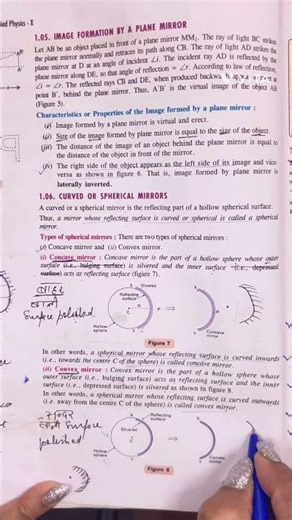 ied Physics - X
1.05. IMAGE FORMATION BY A PLANE MIRROR
Let AB be an object placed in front of a plane mirror MM₁. The ray of light BC strikes
the plane mirror normally and retraces its path along CB. The ray of light AD strikes the
plane mirror at D at an angle of incident ∠i. The incident ray AD is reflected by the
plane mirror along DE, so that angle of reflection = ∠r. According to law of reflection,
∠i = ∠r. The reflected rays CB and DE, when produced backwa
point B', behind the plane mirror. Thus, A'B' is the virtual image of the object AB
(Figure 5).
Characteristics or Properties of the Image formed by a plane mirror :
(i) Image formed by a plane mirror is virtual and erect.
(ii) Size of the image formed by plane mirror is equal to the size of the object.
(iii) The distance of the image of an object behind the plane mirror is equal to
the distance of the object in front of the mirror.
(iv) The right side of the object appears as the left side of its image and vice-
versa as shown in figure 6. That is, image formed by plane mirror is
laterally inverted.
1.06. CURVED OR SPHERICAL MIRRORS
A curved or a spherical mirror is the reflecting part of a hollow spherical surface.
Thus, a mirror whose reflecting surface is curved or spherical is called a spherical
mirror.
Types of spherical mirrors : There are two types of spherical mirrors :
(i) Concave mirror and (ii) Convex mirror.
(i) Concave mirror : Concave mirror is the part of a hollow sphere whose outer
surface (i.e., bulging surface) is silvered and the inner surface (i.e., depressed
surface) acts as reflecting surface (figure 7).
बाहर
वाली
Surface polished
Silvered
Reflecting surface
C
P
Hollow sphere
Concave mirror
Figure 7
In other words, a spherical mirror whose reflecting surface is curved inwards
(i.e., towards the centre C of the sphere) is called concave mirror.
(ii) Convex mirror : Convex mirror is the part of a hollow sphere whose
outer surface (i.e., bulging surface) acts as reflecting surface and the inner
surface (i.e., depressed surface) is silvered as shown in figure 8.
In other words, a spherical mirror whose reflecting surface is curved outwards
(i.e. away from the centre C of the sphere) is called convex mirror.
अन्दर
वाली Surface
polished
Silvered
Reflecting surface
C
Hollow sphere
Figure 8